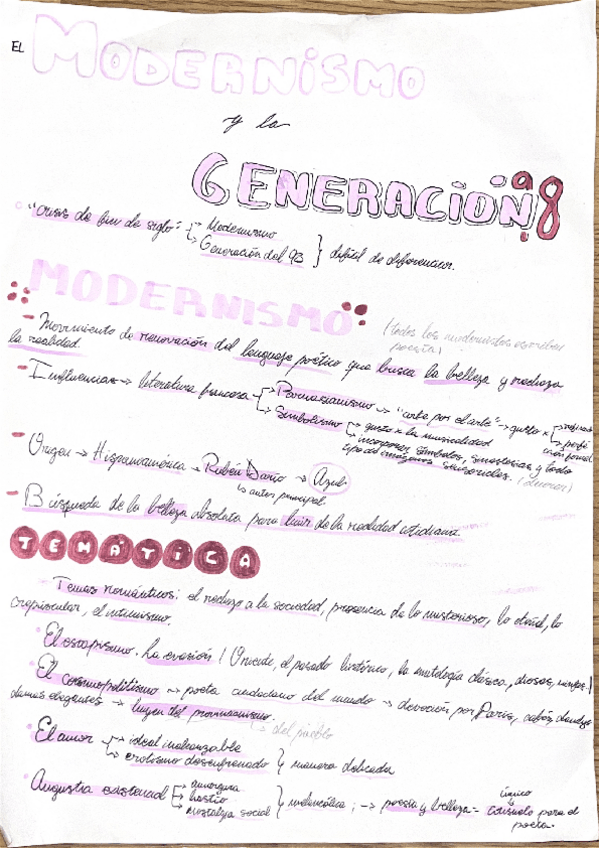 EL MODERNISMO
y la
GENERACIÓN 98
"crisis de fin de siglo" → Modernismo
→ Generación del 98 } difícil de diferenciar.
MODERNISMO
(todos los modernistas escriben poesía)
- Movimiento de renovación del lenguaje poético que busca la belleza y rechaza
la realidad.
- Influencias → literatura francesa → Parnasianismo → "arte por el arte" → gusto x
→ Simbolismo → gusto x la musicalidad
→ incorporar símbolos, sinestesias y todo
tipo de imágenes sensoriales.
- Origen → Hispanoamérica → Rubén Darío → Azul
↳ autor principal
- Búsqueda de la belleza absoluta para huir de la realidad cotidiana.
TEMÁTICA
Temas románticos: el rechazo a la sociedad, presencia de lo misterioso, lo otoñal, lo
crepuscular, el intimismo.
El escapismo. La evasión (Oriente, el pasado histórico, la mitología clásica, diosas, ninfas.)
El cosmopolitismo → poeta ciudadano del mundo → devoción por París,
damas elegentes → huyen del provincianismo.
↳ del pueblo
El amor → ideal inalcanzable
→ erotismo desenfrenado } manera delicada
Angustia existencial → amargura
→ hastío
→ nostalgia social } melancólica; → poesía y belleza = único
consuelo para el
poeta.